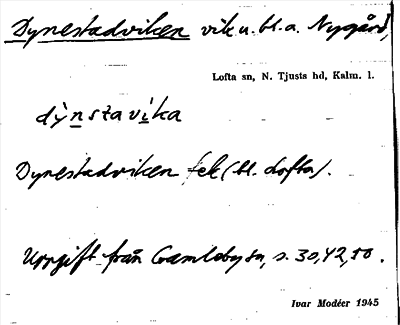 Dynestadviken vik u. bl. a. Nygård,
Lofta sn, N. Tjusts hd, Kalm. l.
dỳnstavìka
Dynestadviken fek (bl. Lofta).
Uppgift från Gamleby sn, s. 30, 42, 50.
Ivar Modéer 1945